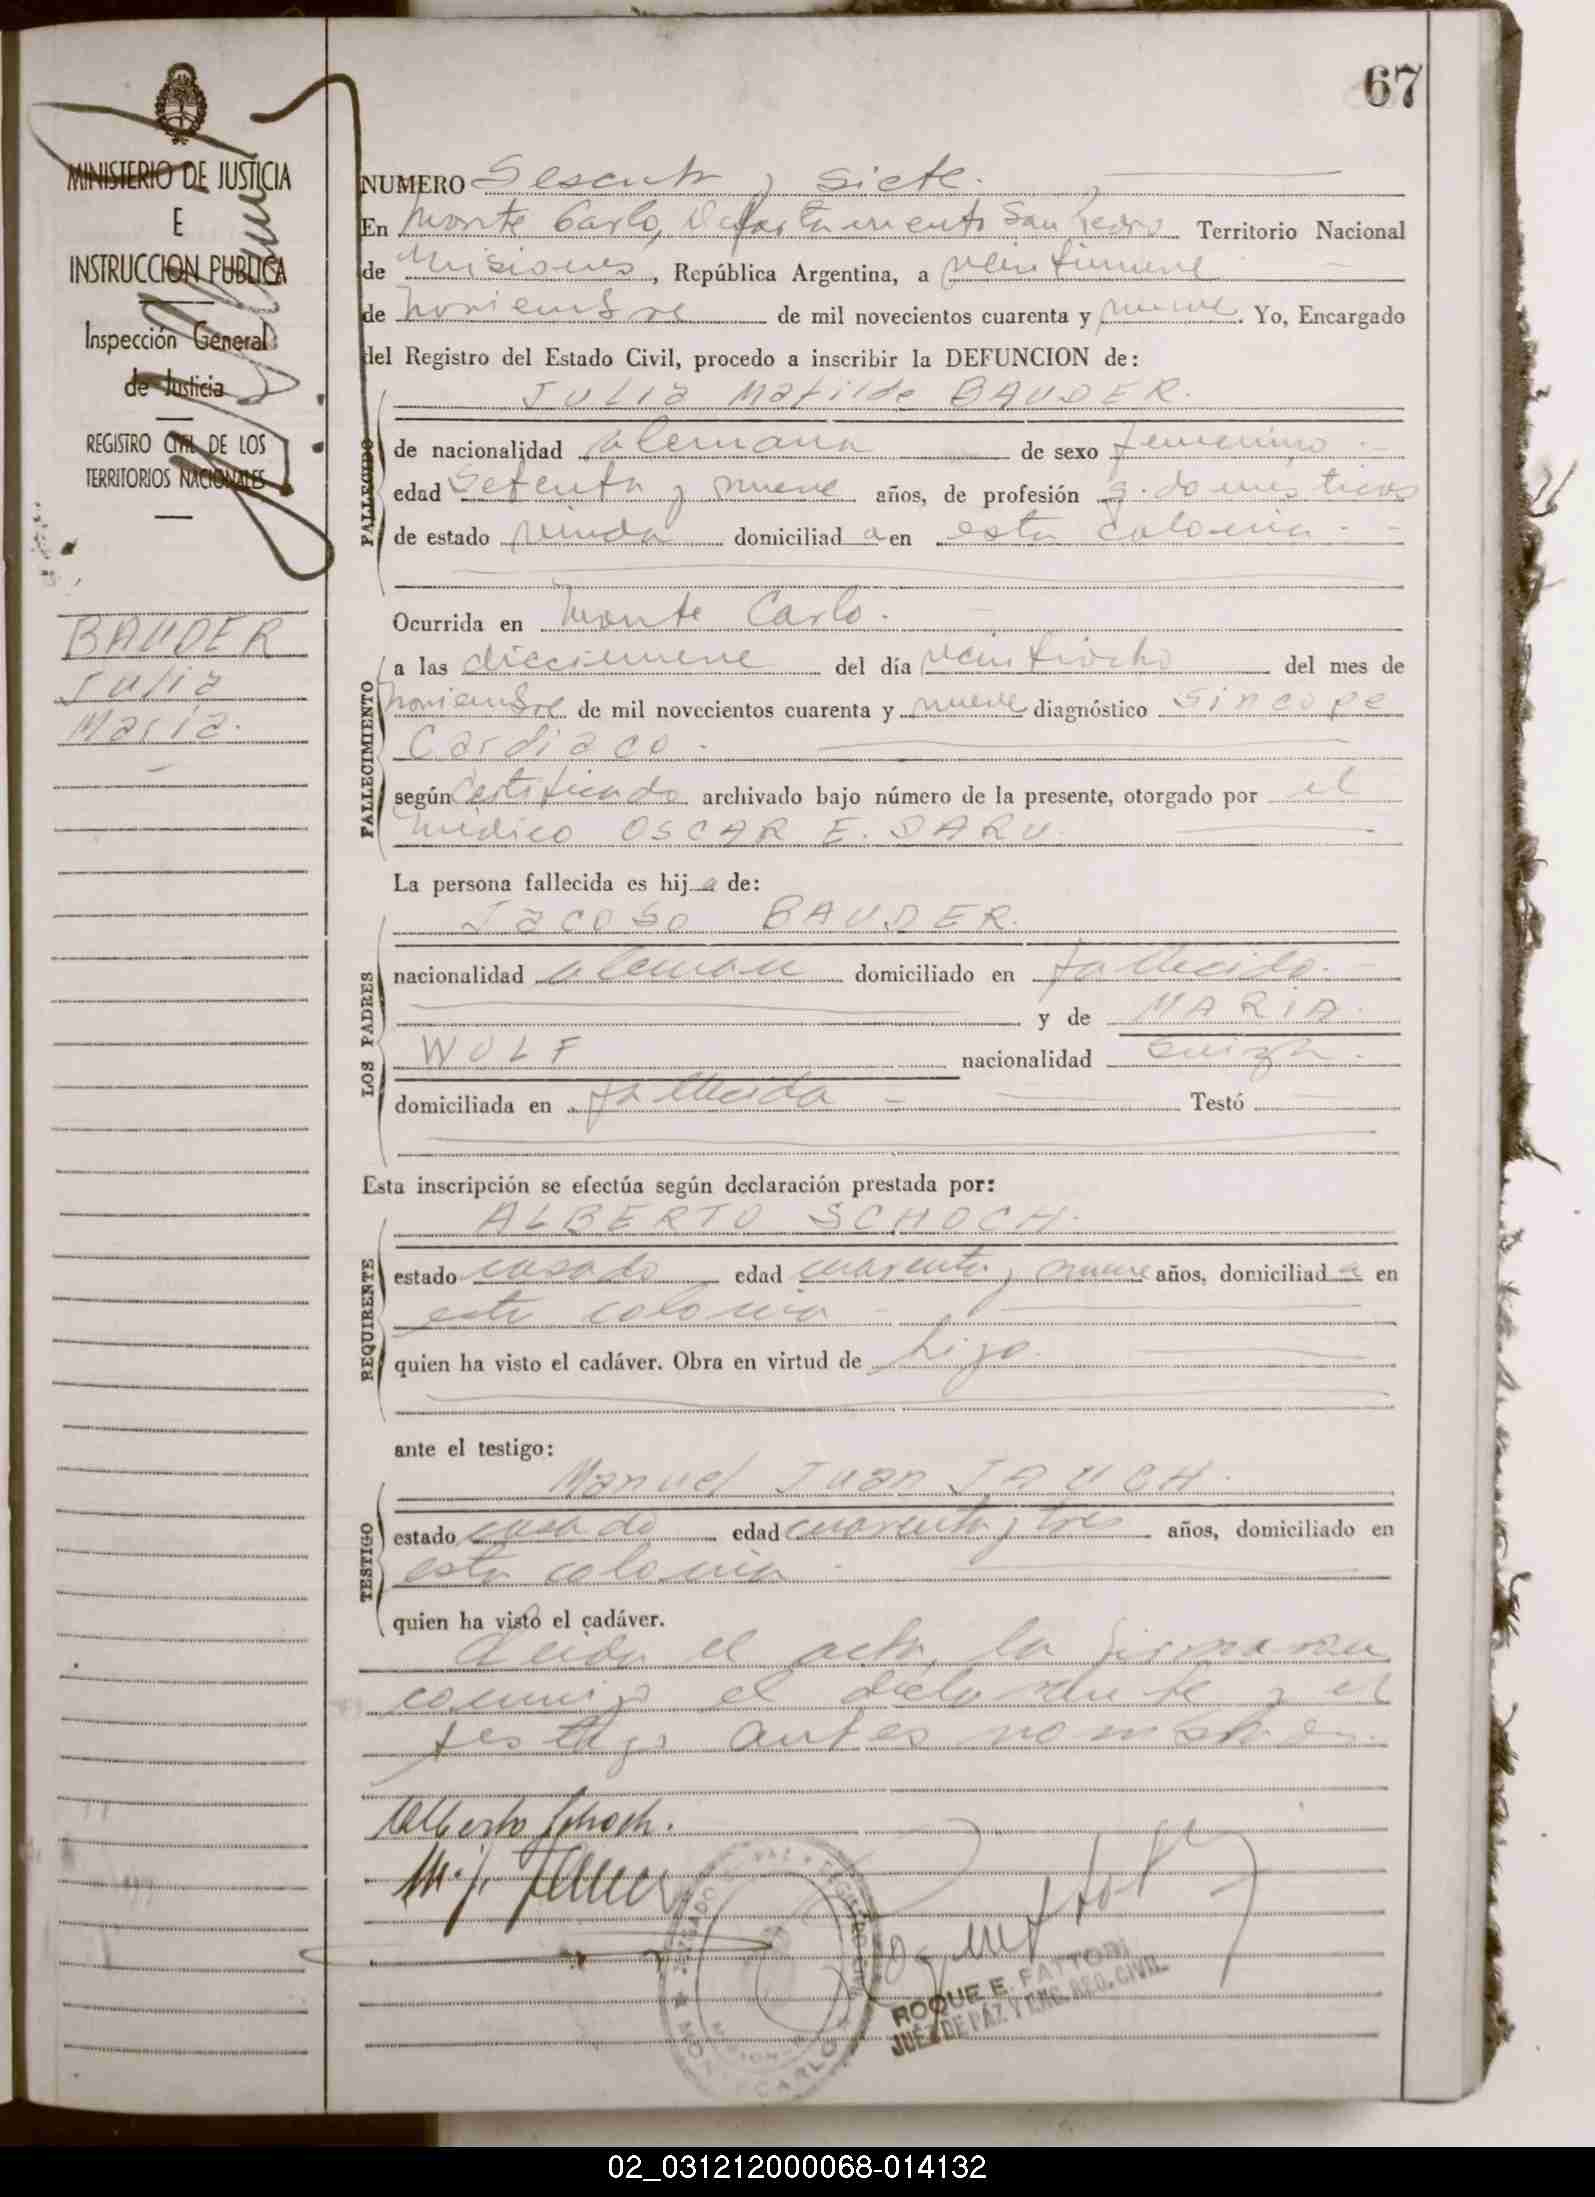 67
MINISTERIO DE JUSTICIA
E
INSTRUCCION PUBLICA
Inspección General
de Justicia
REGISTRO CIVIL DE LOS
TERRITORIOS NACIONALES
BAUDER
Julia
María.
NUMERO Sesenta y siete.
En Monte Carlo, Departamento San Pedro Territorio Nacional
de Misiones, República Argentina, a veintinueve
de noviembre de mil novecientos cuarenta y nueve. Yo, Encargado
del Registro del Estado Civil, procedo a inscribir la DEFUNCION de:
JULIA Matilde BAUDER.
FALLECIDO
de nacionalidad alemana de sexo femenino
edad Setenta y nueve años, de profesión q. domésticos
de estado viuda domiciliad a en esta colonia
Ocurrida en Monte Carlo.
FALLECIMIENTO
a las diecinueve del día veintiocho del mes de
noviembre de mil novecientos cuarenta y nueve diagnóstico Sincope
Cardiaco.
según Certificado archivado bajo número de la presente, otorgado por el
médico OSCAR E. DARU.
La persona fallecida es hij a de:
LOS PADRES
Jacobo BAUDER.
nacionalidad aleman domiciliado en fallecido.
y de MARIA
WOLF nacionalidad suiza.
domiciliada en fallecida Testó
Esta inscripción se efectúa según declaración prestada por:
REQUIRENTE
ALBERTO SCHOCH.
estado casado edad cuarenta y nueve años, domiciliad o en
esta colonia
quien ha visto el cadáver. Obra en virtud de hijo.
ante el testigo:
TESTIGO
Manuel Juan JAUCH.
estado casado edad cuarenta y tres años, domiciliado en
esta colonia.
quien ha visto el cadáver.
Leida el acta, la firmaron
conmigo el declarante y el
testigo antes nombrado.
Alberto Schoch.
M. J.
CARLO
ROQUE E. FATTORI
JUEZ DE PAZ Y ENC. REG. CIVIL
02_031212000068-014132